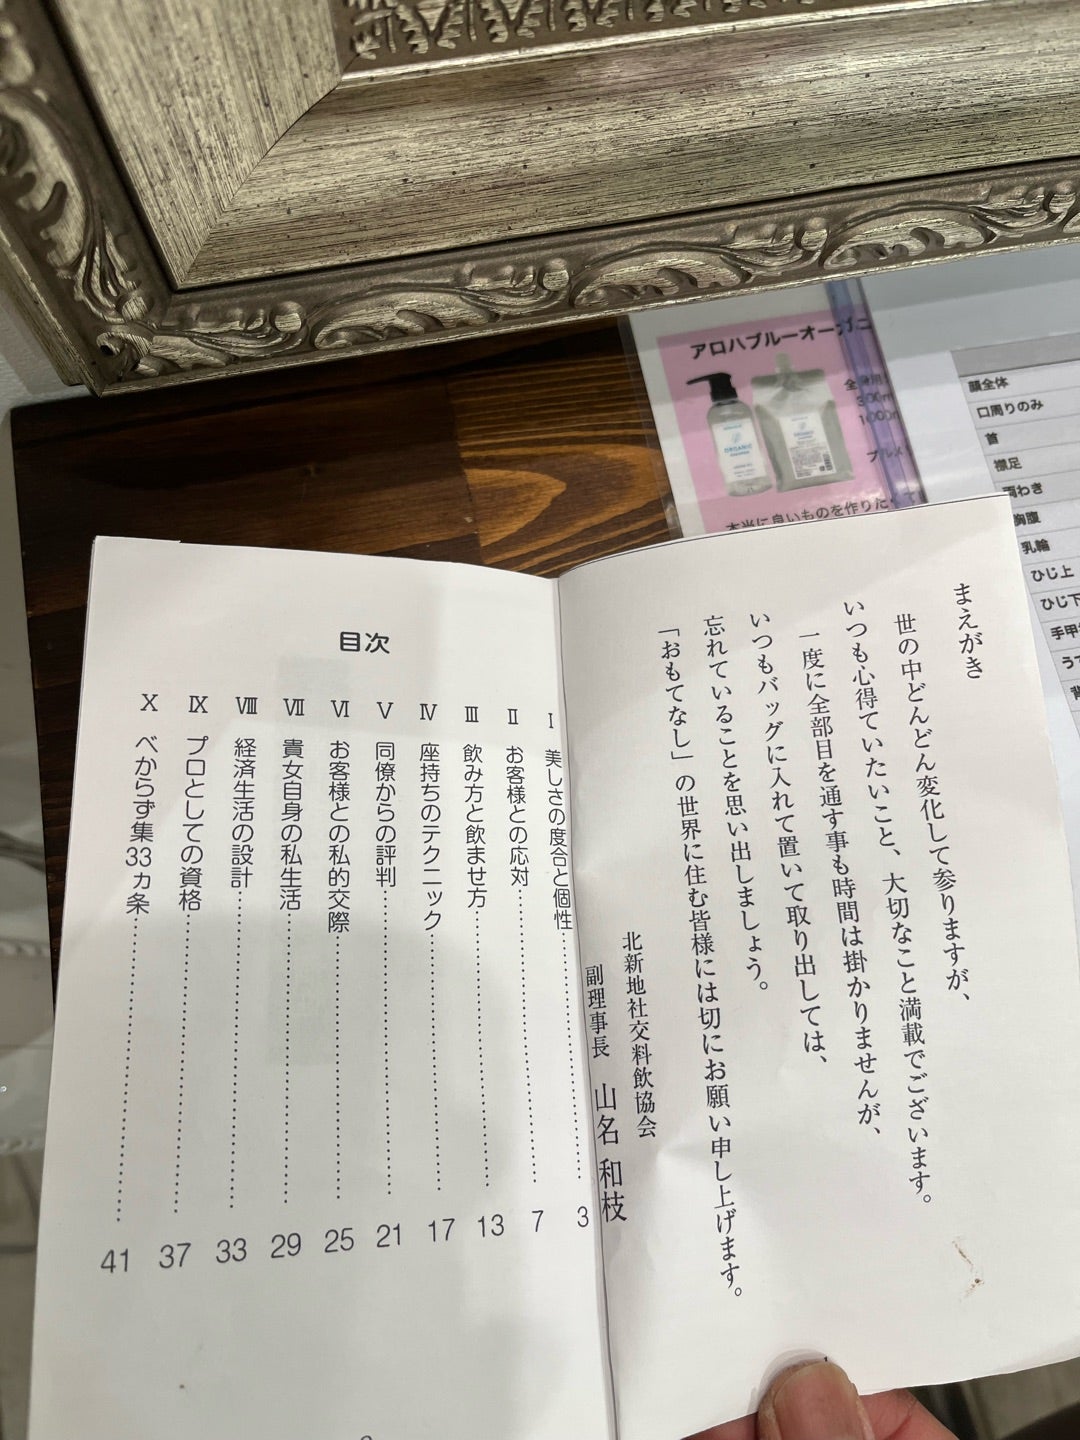 まえがき
世の中どんどん変化して参りますが、
いつも心得ていたいこと、大切なこと満載でございます。
一度に全部目を通す事も時間は掛かりませんが、
いつもバッグに入れて置いて取り出しては、
忘れていることを思い出しましょう。
「おもてなし」の世界に住む皆様には切にお願い申し上げます。
北新地社交料飲協会
副理事長 山名 和枝
目次
Ⅰ 美しさの度合と個性 3
Ⅱ お客様との応対 7
Ⅲ 飲み方と飲ませ方 13
Ⅳ 座持ちのテクニック 17
Ⅴ 同僚からの評判 21
Ⅵ お客様との私的交際 25
Ⅶ 貴女自身の私生活 29
Ⅷ 経済生活の設計 33
Ⅸ プロとしての資格 37
Ⅹ べからず集33ヵ条 41
アロハブルーオーガニ
ORGANIC
本当に良いものを作りたくて
顔全体
口周りのみ
首
襟足
両わき
胸腹
乳輪
ひじ上
ひじ下
手甲